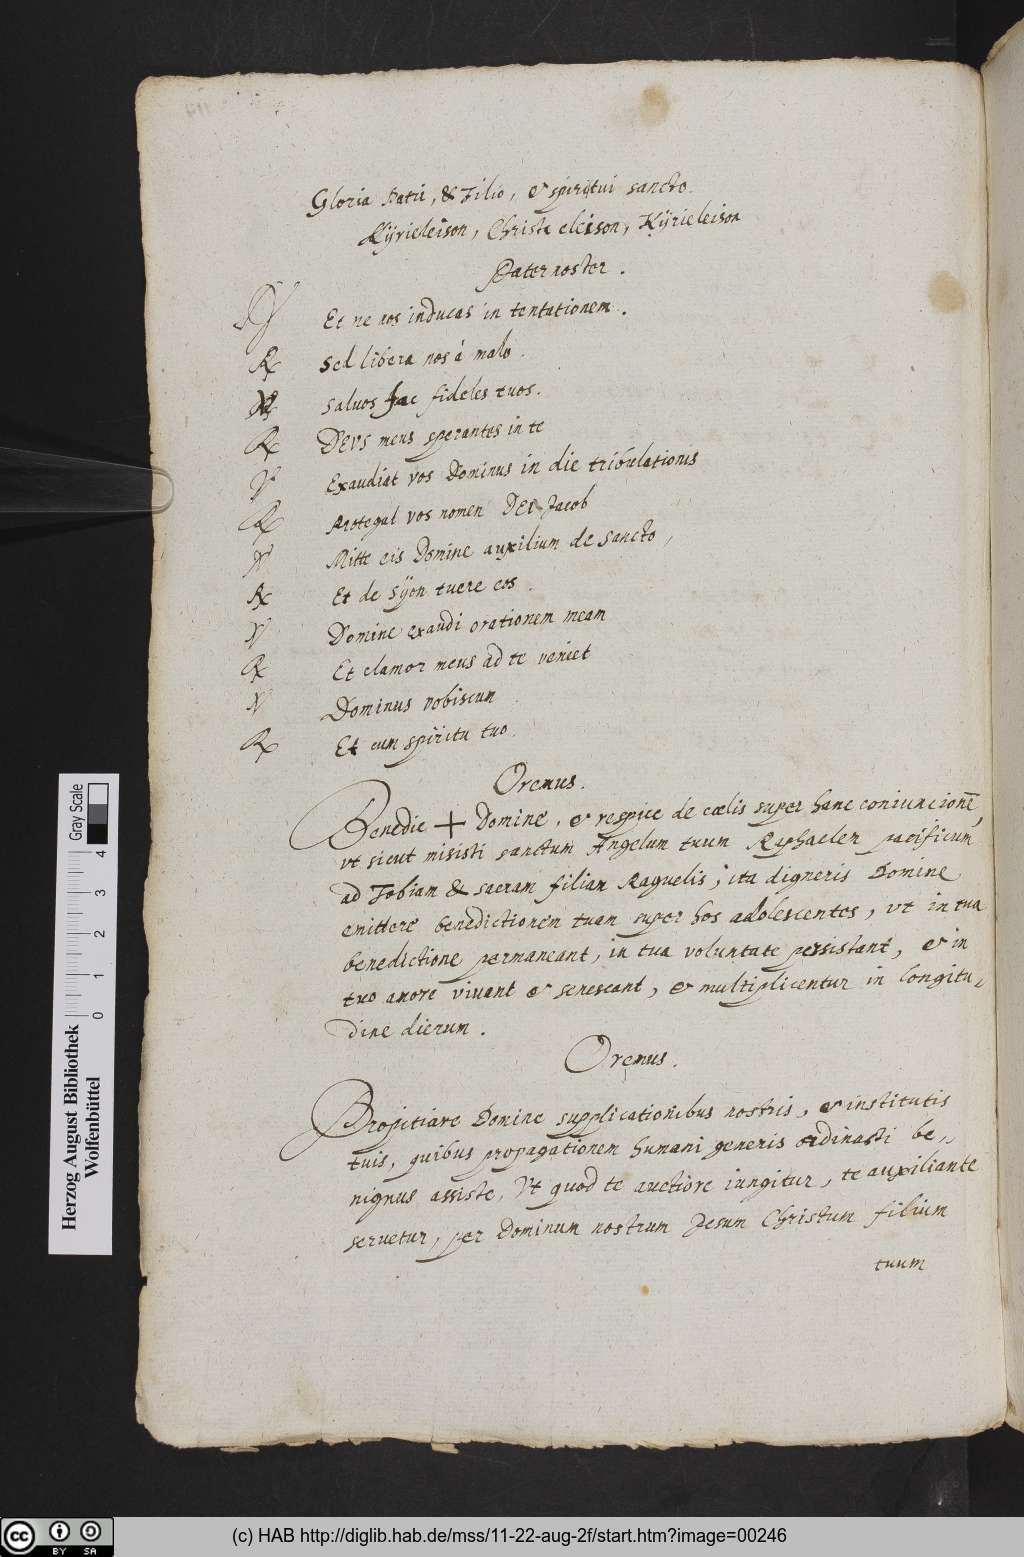 Gloria Patri, & Filio, & spiritui sancto.
Kÿrieleison, Christe eleison, Kÿrieleison
Pater noster.
V Et ne nos inducas in tentationem.
R Sed libera nos à malo.
V Saluos fac fideles tuos.
R DEVS meus sperantes in te
V Exaudiat vos Dominus in die tribulationis
R Protegat vos nomen DEI Jacob
V Mitte eis Domine auxilium de Sancto,
R Et de Sÿon tuere eos.
V Domine exaudi orationem meam
R Et clamor meus ad te veniet
V Dominus vobiscum
R Et cum spiritu tuo.
Oremus.
Benedic + Domine, & respice de cœlis super hanc coniuncionē,
vt sicut misisti sanctum Angelum tuum Raphaelem pacificum
ad Tobiam & sacram filiam Raguelis; ita digneris Domine
emittere benedictionem tuam super hos adolescentes, vt in tua
benedictione permaneant, in tua voluntate persistant, & in
tuo amore viuant & senescant, & multiplicentur in longitu„
dine dierum.
Oremus.
Propitiare Domine supplicationibus nostris, & institutis
tuis, quibus propagationem humani generis ordinasti be„
nignus assiste, Vt quod te auctore iungitur, te auxiliante
seruetur, per Dominum nostrum Jesum Christum filium
tuum
Gray Scale
4 3 2 1 0
Herzog August Bibliothek
Wolfenbüttel
cc BY SA
(c) HAB http://diglib.hab.de/mss/11-22-aug-2f/start.htm?image=00246